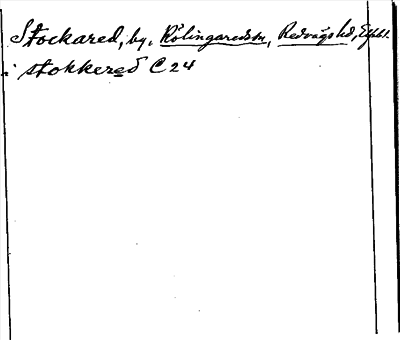 Stockared, by, Rölingaredssn, Redvägs hd, Älfsbl.
: stokkered C 24